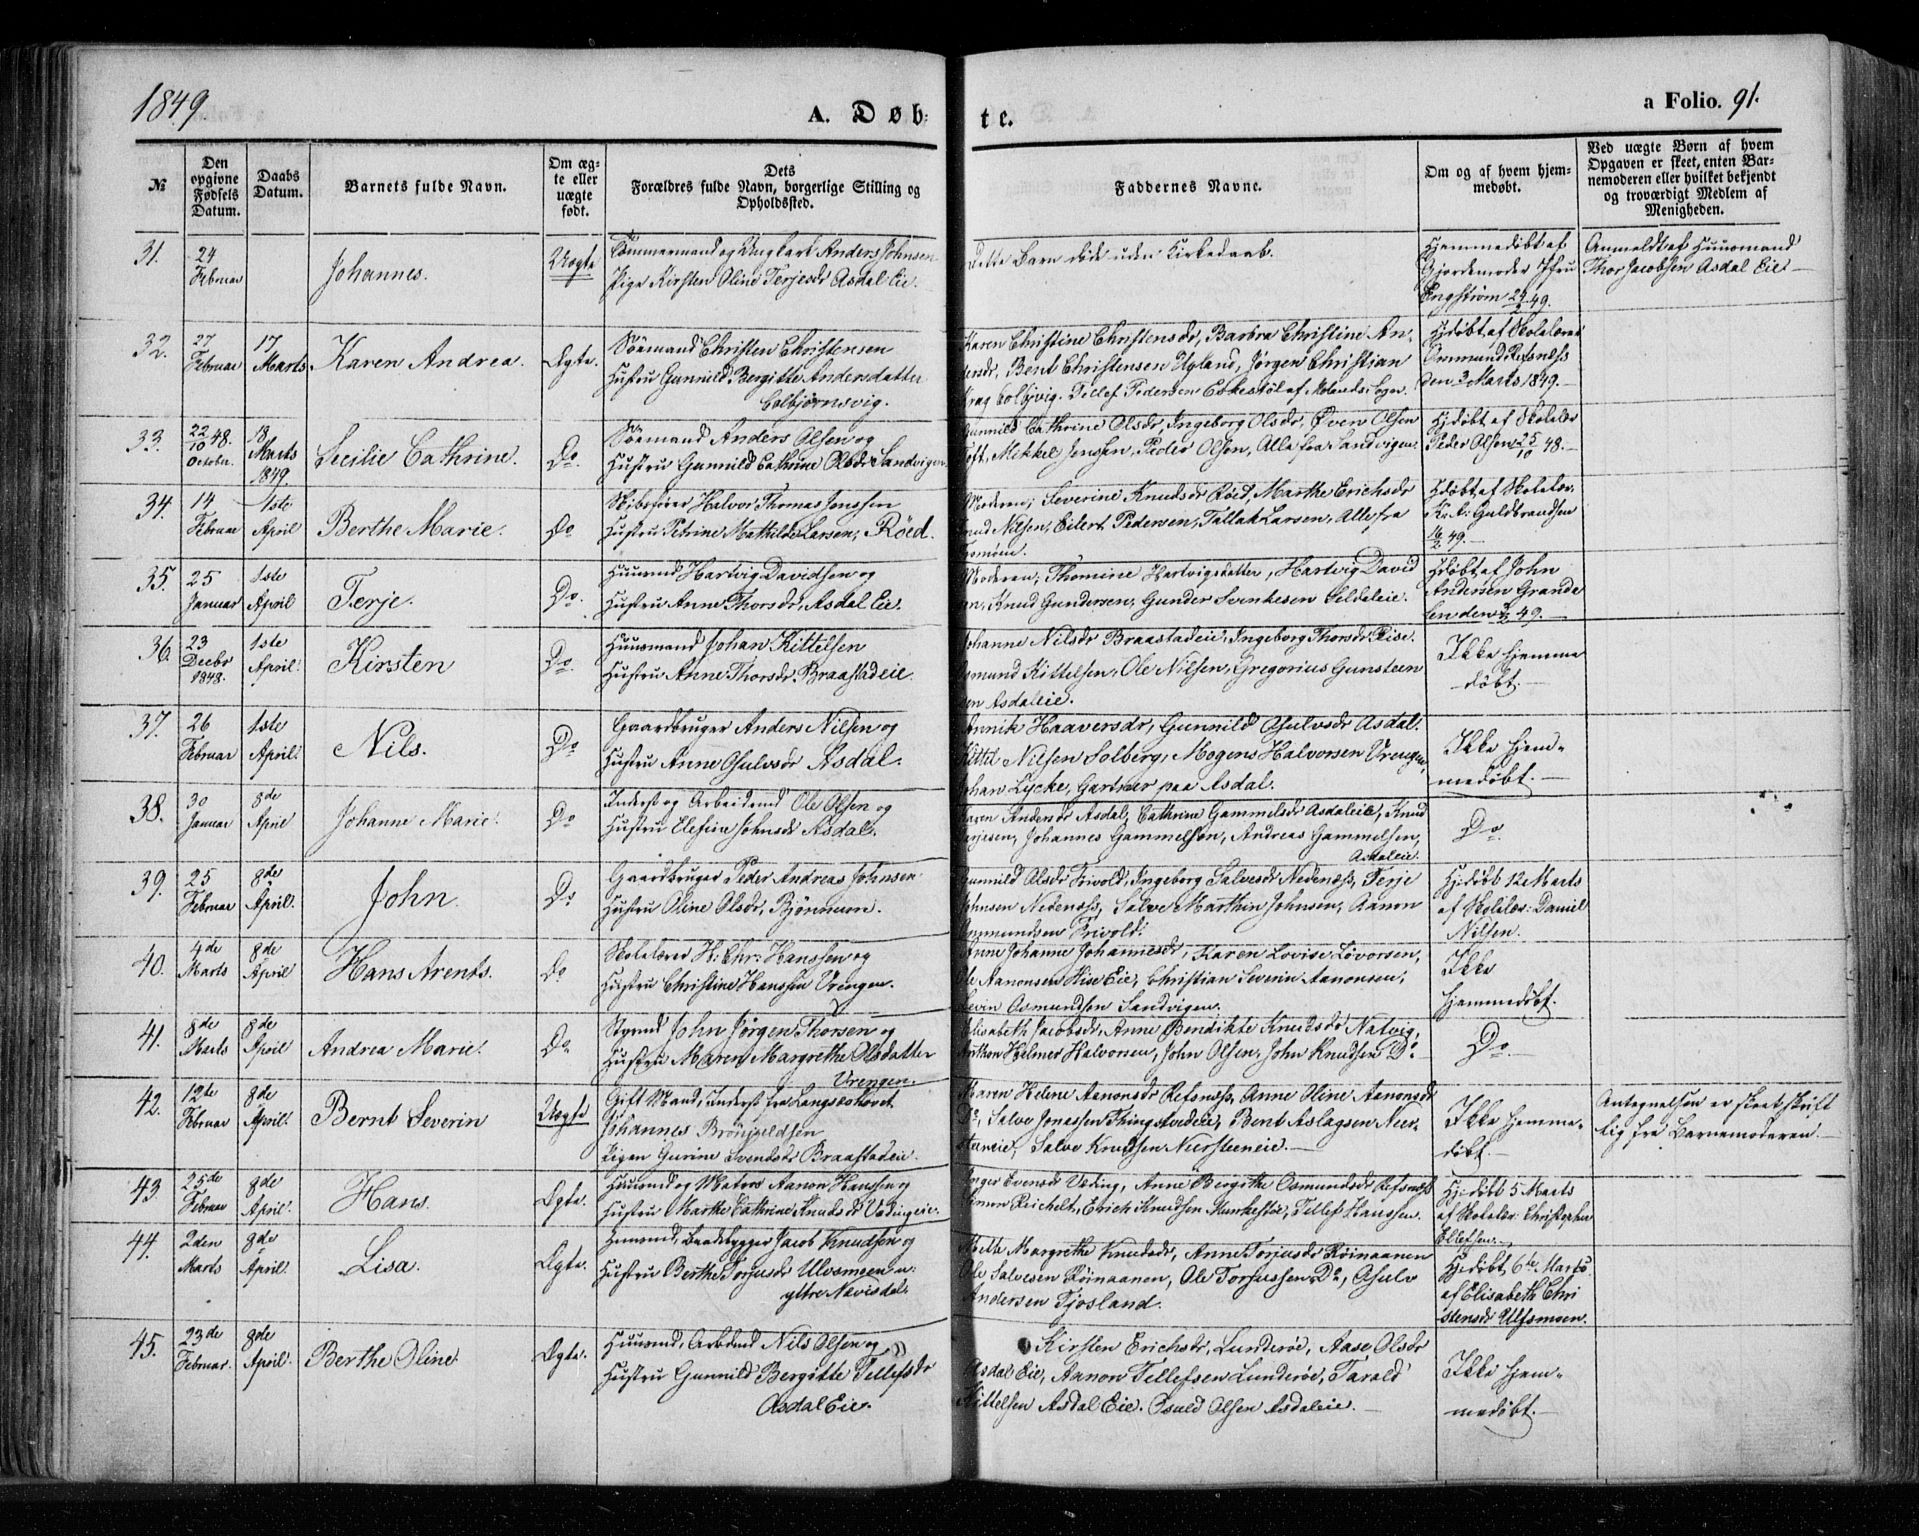 1849.
A. Døb-
te.
a Folio. 91.
№
Den
opgivne
Fødsels
Datum.
Daabs
Datum.
Barnets fulde Navn.
Om æg-
te eller
uægte
født.
Dets
Forældres fulde Navn, borgerlige Stilling og
Opholdssted.
Faddernes Navne.
Om og af hvem hjem-
medøbt.
Ved uægte Børn af hvem
Opgaven er skeet, enten Bar-
nemoderen eller hvilket bekjendt
og troværdigt Medlem af
Menigheden.
31.
24
Februar
Johannes.
Uægte
Tømmermand og Ungkarl Anders Johnsen
Pige Kirsten Oline Terjesdr Asdal Eie.
Dette Barn døde uden Kirkedaab.
Hjemmedøbt af
Gjordemoder Jfru
Engstrøm 24/2 49.
Anmeldt af Huusmand
Thor Jacobsen Asdal Eie
32.
27
Februar
17
Marts
Karen Andrea.
Ægte.
Sømand Christen Christensen
Hustru Gunnild Bergitte Andersdatter
Colbjørnsvig.
Karen Christine Christensdr, Barbra Christine An-
dersdr, Bent Christensen Ugland, Jørgen Christian
Krag Colbjvig. Tellef Pedersen Eskestøl af Molands Sogn.
Hjdøbt af Skolelærer
Ommund Refsnæss
den 3 Marts 1849.
33.
22/10 48.
October.
18
Marts
1849
Cecilie Cathrine.
Do
Sømand Anders Olsen og
Hustru Gunnild Cathrine Olsdr Sandvigen
Gunnild Cathrine Olsdr, Ingeborg Olsdr, Even Olsen
Toft, Mekkel Jensen, Peder Olsen, Alle fra Sandvigen.
Hjdøbt af Skolelær
Peder Olsen 25/10 48.
34.
14
Februar
1ste
April
Berthe Marie.
Do
Skibsfører Halvor Thomas Jenssen
Hustru Petrine Mathilde Larsen, Røed.
Moderen, Severine Knudsdr Røed, Marthe Erichsdr
Knud Nilsen, Eilert Pedersen, Tallak Larsen, Alle fra
Tromøen.
Hjdøbt af Skolelær.
K. A. Guldbrandsen
16/2 49.
35.
25
Januar
1ste
April
Terje.
Do.
Huusmd Hartvig Davidsen og
Hustru Anne Thorsdr, Asdal Eie.
Moderen, Thomine Hartvigsdatter, Hartvig David
sen, Knud Gundersen, Gunder Svenkesen Seldaleie.
Hjdøbt af John
Andersen Grande
len den 49.
36.
23
Decbr
1848.
1ste
April
Kirsten
Do.
Huusmand Johan Kittelsen
Hustru Anne Thorsdr. Braastadeie.
Johanne Nilsdr Braastadeie, Ingeborg Thorsdr Rise.
Osmund Kittelsen, Ole Nilsen, Gregorius Gunsteen
sen Asdaleie.
Ikke hjemme
døbt.
37.
26
Februar
1ste
April.
Nils.
Do
Gaardbruger Anders Nilsen og
Hustru Anne Osulvsdr Asdal.
Annik Haaversdr, Gunnild Osulvsdr Asdal.
Kittil Nilsen Solberg, Mogens Halvorsen Vrengen,
Johan Lycke, Gartner paa Asdal.
Ikke hjem-
medøbt.
38.
30
Januar
8de
April
Johanne Marie.
Do
Inderst og Arbeidsmd Ole Olsen og
Hustru Elefine Johnsdr Asdal.
Karen Andersdr Asdal, Cathrine Gammelsdr Asdaleie, Knud
Terjesen, Johannes Gammelsen, Andreas Gammelsen,
Asdaleie.
Do.
39.
25
Februar
8de
April.
John.
Do
Gaardbruger Peder Andreas Johnsen
Hustru Oline Olsdr, Bjønnum.
Gunnild Olsdr Frivold, Ingeborg Salvesdr Nedenæss, Terje
Johnsen Nedenæss, Salve Marthin Johnsen, Aanon
Ommundsen Frivold.
Hjdøbt 12 Marts
af Skolelær: Daniel
Nilsen.
40.
4de
Marts
8de
April
Hans Arents.
Do
Skolelærer H. Chr. Hanssen og
Hustru Christine Hanssen Vrengen.
Anne Johanne Johannesdr, Karen Lovise Løvorsen,
Ole Aanonsen Hise Eie, Christian Severin Aanonsen,
Levin Osmundsen Sandvigen.
Ikke
hjemmedøbt.
41.
8de
Marts
8de
April
Andrea Marie.
Do
Styrmd John Jørgen Thorsen og
Hustru Maren Margrethe Olsdatter
Vrengen.
Elisabeth Jacobsdr, Anne Bendikte Knudsdr Natvig,
Anthon Helmer Halvorsen, John Olsen, John Knudsen Do.
Do.
42.
12te
Februar
8de
April
Bernt Severin
Uægte
Gift Mand, Inderst fra Langsæhovet
Johannes Brønjeldsen
Pigen Gurine Svendsdr Braastadeie.
Maren Helene Aanonsdr Refsnæss, Anne Oline Aanonsdr
Do, Salve Jonassen Thingstvedeie, Bent Aslagsen Nær-
steneie, Salve Knudsen Nærsteneie.
Ikke hjemme-
døbt.
Antegnelsen er skeet skrift
lig fra Barnemoderen
43.
25de
Februar
8de
April.
Hans.
Ægte.
Huusmd og Matros Aanon Hanssen og
Hustru Marthe Cathrine Knudsdr Vedingeie.
Inger Evensdr Veding, Anne Bergithe Osmundsdr Refsnæss
Simon Reichelt, Erich Knudsen Munkestøe, Tellef Hanssen.
Hjdøbt 5 Marts
af Skolelær: Christopher
Ellefsen.
44.
2den
Marts
8de
April.
Lisa.
Ægte.
Huusmd, Baadebygger Jacob Knudsen og
Hustru Berthe Torjusdr Ulvsmoen u.
ytre Nævisdal.
Mette Margrethe Knudsdr, Anne Torjusdr Røinaanen
Ole Salvesen Røinaanen, Ole Torjussen Do, Osulv
Andersen Tjosland.
Hjdøbt 6te Marts
af Elisabeth Chri
stensdr Ulfsmoen.
45.
23de
Februar.
8de
April.
Berthe Oline
Ægte.
Huusmd, Arbeidsmd Nils Olsen og
Hustru Gunnild Bergitte Tellefsdr
Asdal Eie.
Kirsten Erichsdr, Lunderøe, Aase Olsdr
Asdal Eie, Aanon Tellefsen Lunderøe, Tarald
Kittelsen Asdal Eie. Osuld Olsen Asdaleie.
Ikke hjem-
medøbt.